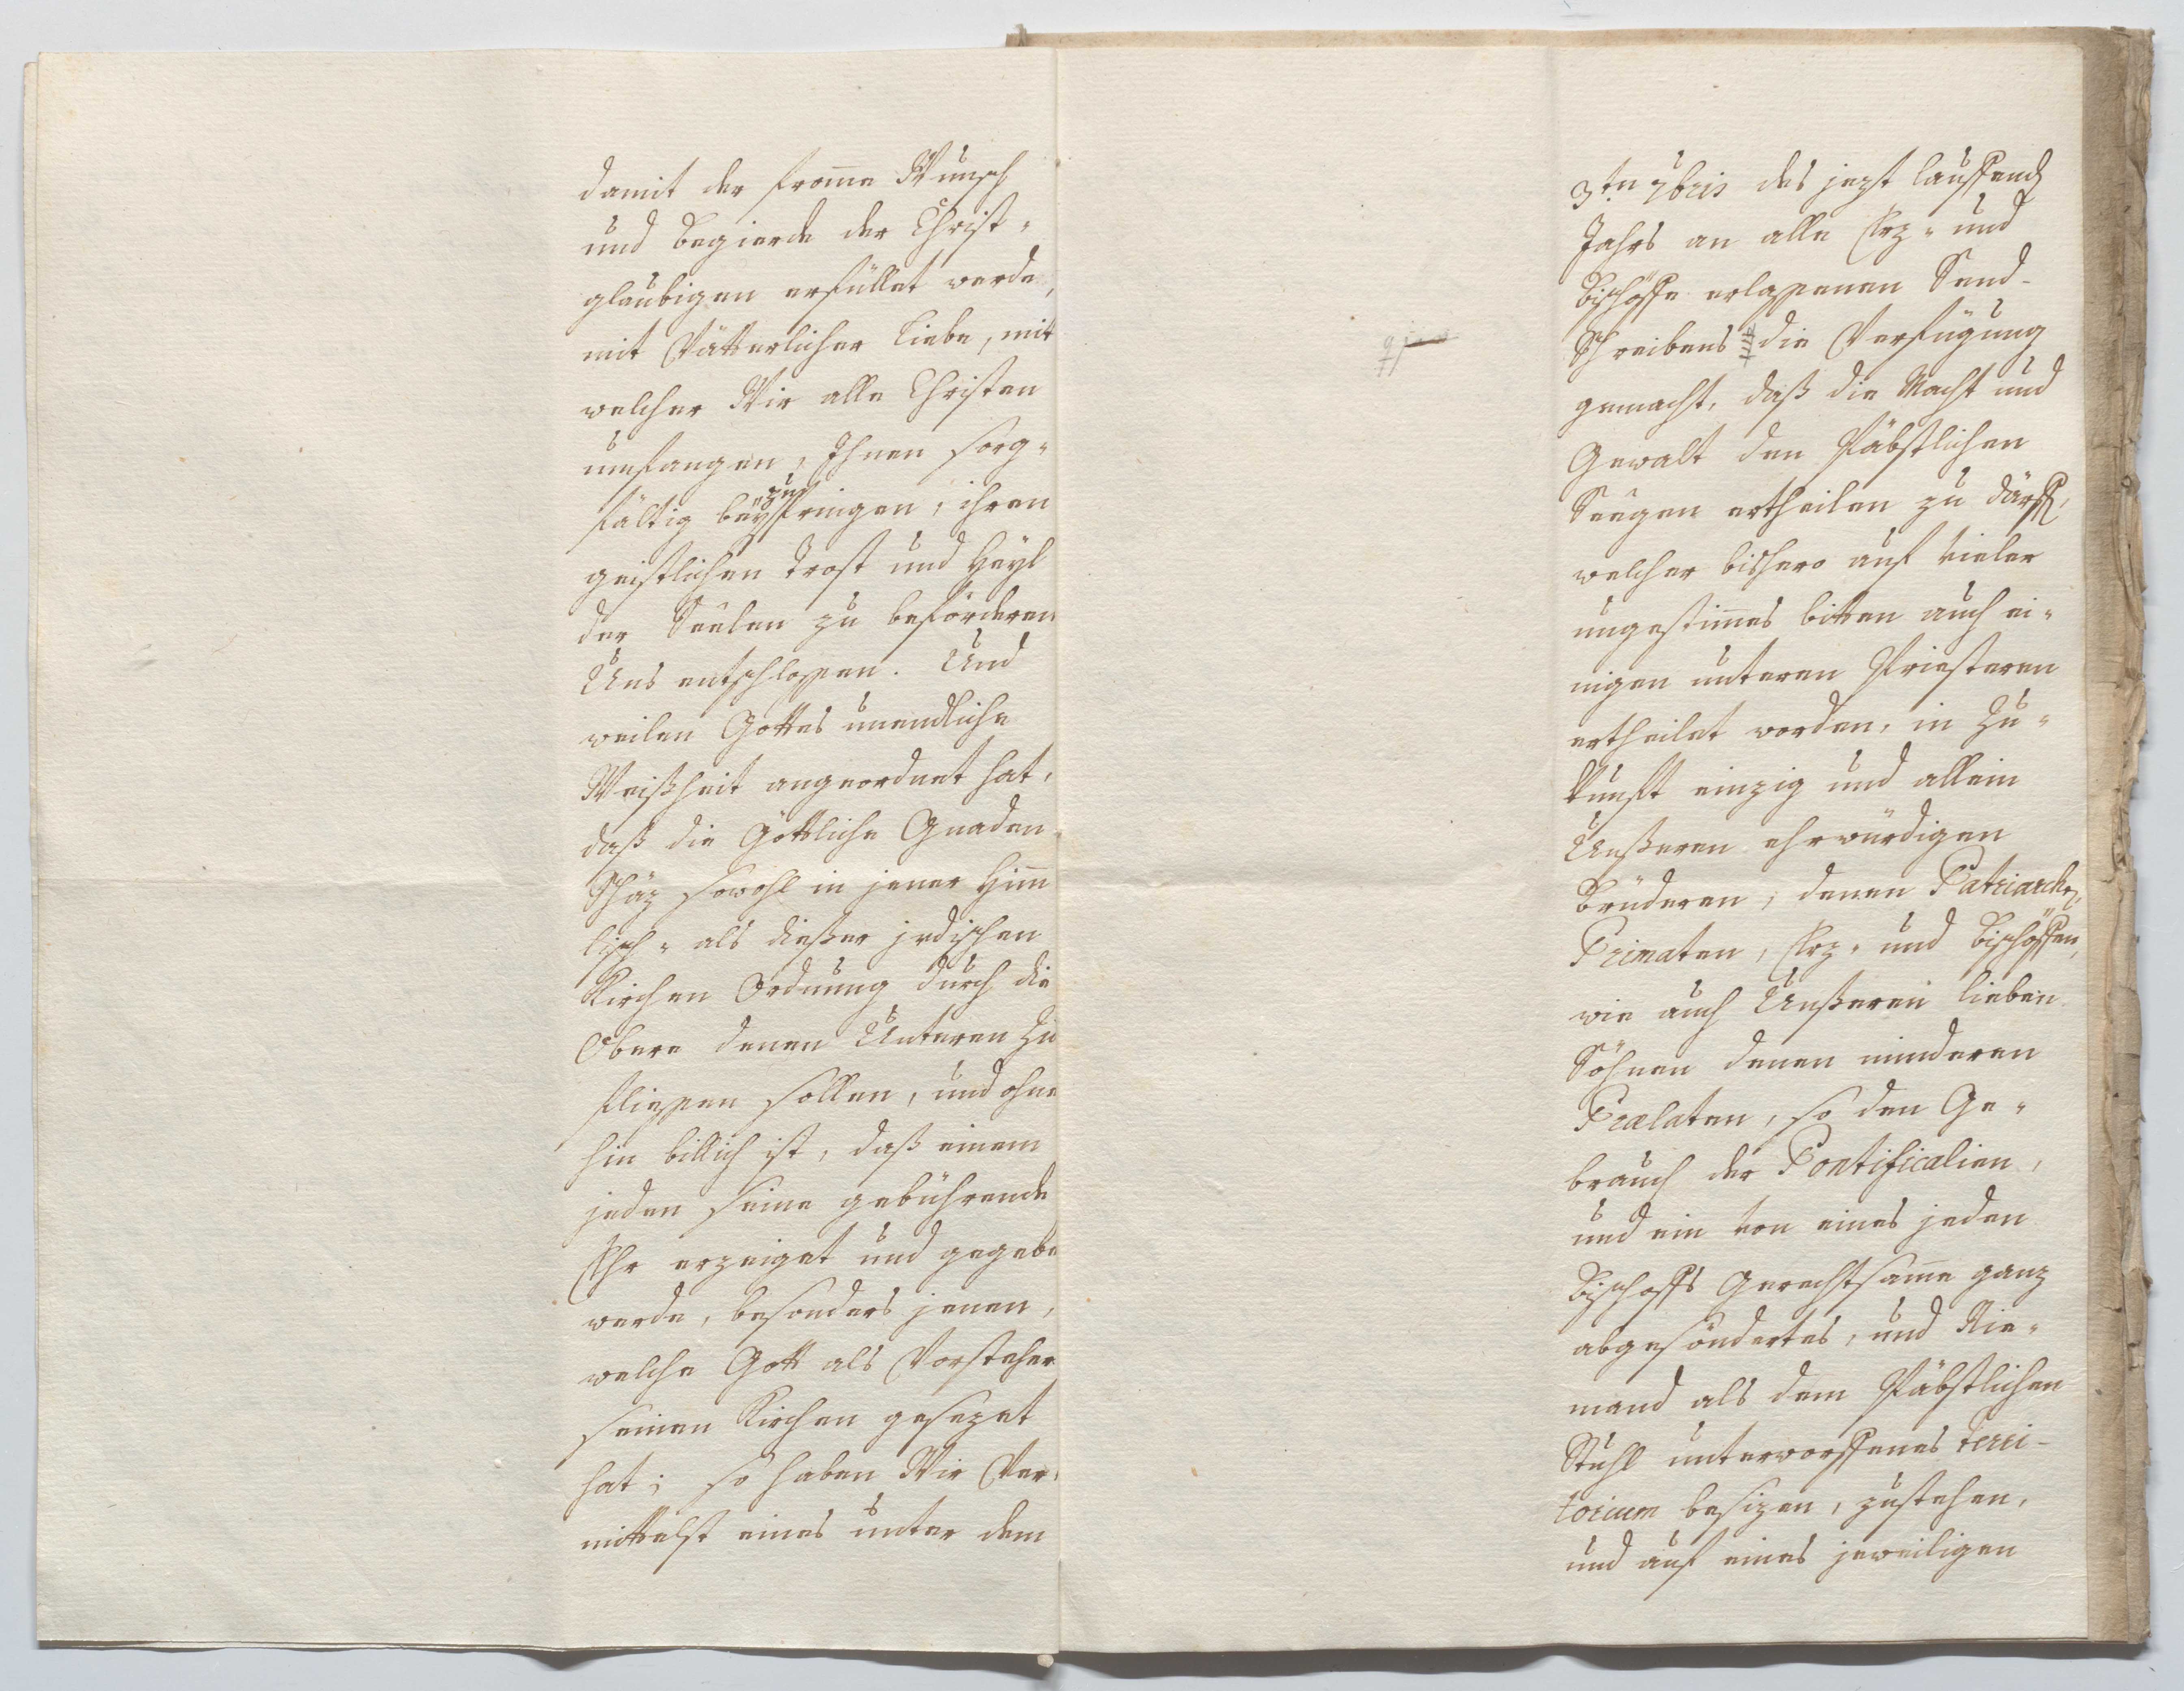 damit der from̄e Wunsch
und Begierde der Christ-
glaubigen erfüllet werde,
mit Vätterlicher Liebe, mit
welcher Wir alle Christen
umfangen, Ihnen sorg-
fältig beyzuspringen, ihren
geistlichen Trost und Heyl
der Seelen zu beförderen
Uns entschlossen. Und
weilen Gottes unendliche
Weißheit angeordnet hat,
daß die Göttliche Gnaden-
Schäz sowohl in jener Him̄
lisch- als dießer jrdischen
Kirchen Ordnung durch die
Obere denen Unteren zu
fliessen sollen, und ohne
hin billich ist, daß einem
jeden seine gebührende
Ehr erzeiget und gegebe
werde, besonders jenen,
welche Gott als Vorsteher
seinen Kirchen gesezet
hat; so haben Wir Ver-
mittelst eines unter dem
3ten 7bris des jezt lauffend
Jahrs an alle Erz- und
Bischöffe erlassenen Send-
Schreibens die Verfügung
gemacht, daß die Macht und
Gewalt den Päbstlichen
Seegen ertheilen zu därff,
welcher bishero auf vieler
ungestim̄es bitten auch ei-
nigen unteren Priesteren
ertheilet worden, in Zu-
kunft einzig und allein
Unßeren ehrwürdigen
Brüderen, denen Patriarch,
Primaten, Erz- und Bischöffen,
wie auch Unßeren lieben
Söhnen denen minderen
Prælaten, so den Ge-
brauch der Pontificalien,
und ein von eines jeden
Bischoffs Gerechtsam̄e ganz
abgesöndertes, und Nie-
mand als dem Päbstlichen
Stuhl unterworffenes terri-
torium besizen, zustehen,
und auf eines jeweiligen